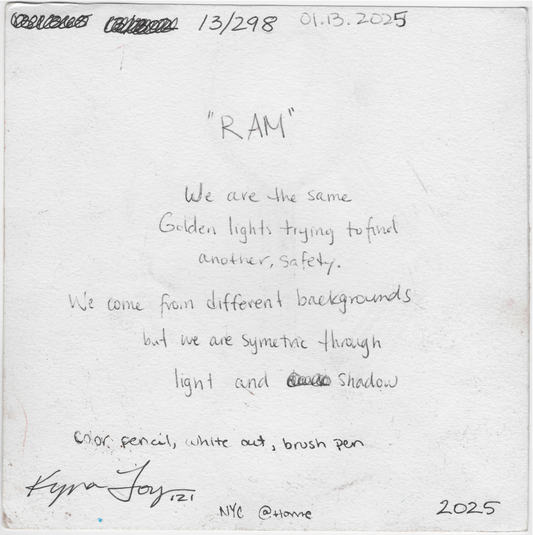 13/298 01.13.2025
"RAM"
We are the same
Golden lights trying to find
another, safety.
We come from different backgrounds
but we are symetric through
light and shadow
color pencil, white out, brush pen
Kyra Joy 121
NYC @Home 2025